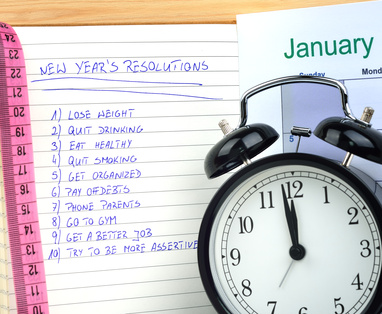 NEW YEAR'S RESOLUTIONS
1) LOSE WEIGHT
2) QUIT DRINKING
3) EAT HEALTHY
4) QUIT SMOKING
5) GET ORGANIZED
6) PAY OFF DEBTS
7) PHONE PARENTS
8) GO TO GYM
9) GET A BETTER JOB
10) TRY TO BE MORE ASSERTIVE
January
Sunday Mond
5
12
1
2
3
4
7
8
9
10
11
24
23
22
21
20
19
18
17
16
15
14
13
12
11